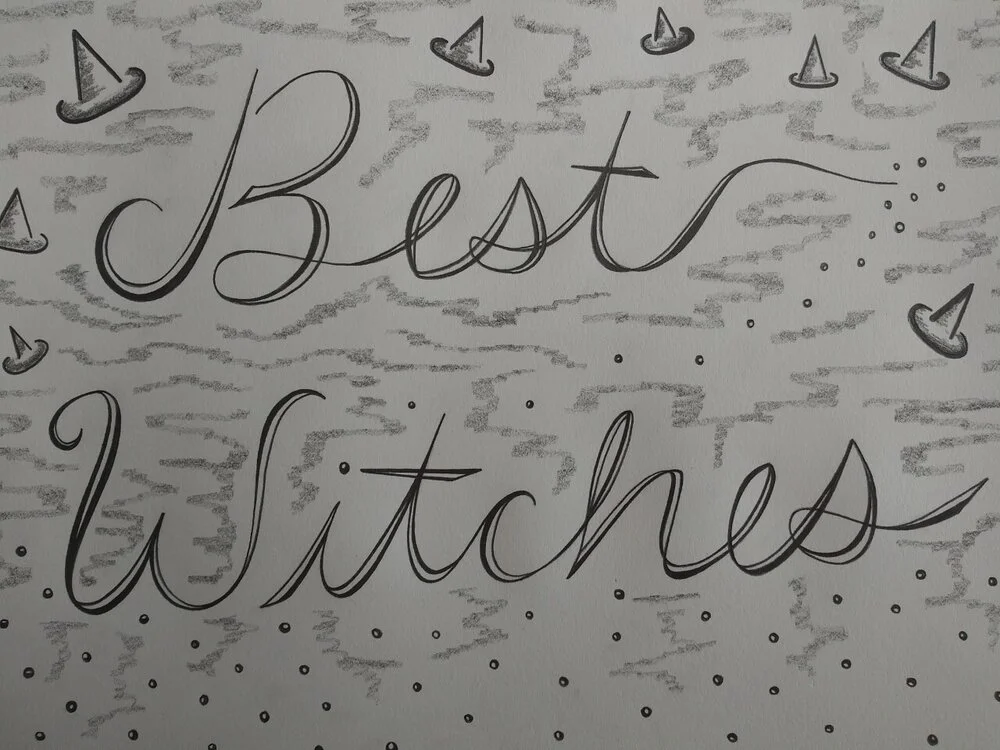 Best
Witches